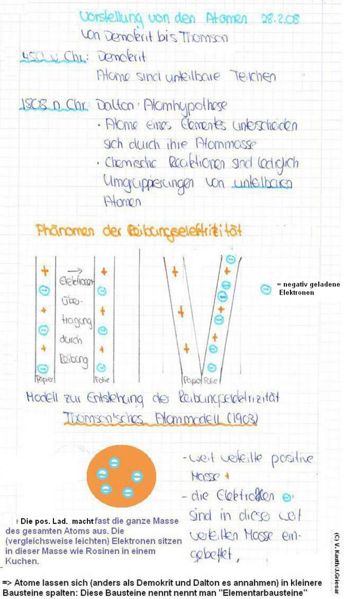 Vorstellung von den Atomen 28.2.08
Von Demokrit bis Thomson
450 v. Chr.: Demokrit
Atome sind unteilbare Teilchen
1808 n. Chr. Dalton: Atomhypothese
• Atome eines Elementes unterscheiden
sich durch ihre Atommasse
• Chemische Reaktionen sind lediglich
Umgruppierungen von unteilbaren
Atomen
Phänomen der Reibungselektrizität
Elektronen
über-
tragung
durch
Reibung
= negativ geladene
Elektronen
Papier Folie Papier Folie
Modell zur Entstehung der Reibungselektrizität
Thomsonsches Atommodell (1903)
- weit verteilte positive
Masse +
- die Elektronen
sind in diese weit
verteilten Masse ein-
gebettet,
! Die pos. Lad. macht fast die ganze Masse
des gesamten Atoms aus. Die
(vergleichsweise leichten) Elektronen sitzen
in dieser Masse wie Rosinen in einem
Kuchen.
(C) V. Kanth/J.Grinmar
=> Atome lassen sich (anders als Demokrit und Dalton es annahmen) in kleinere
Bausteine spalten: Diese Bausteine nennt nennt man "Elementarbausteine"